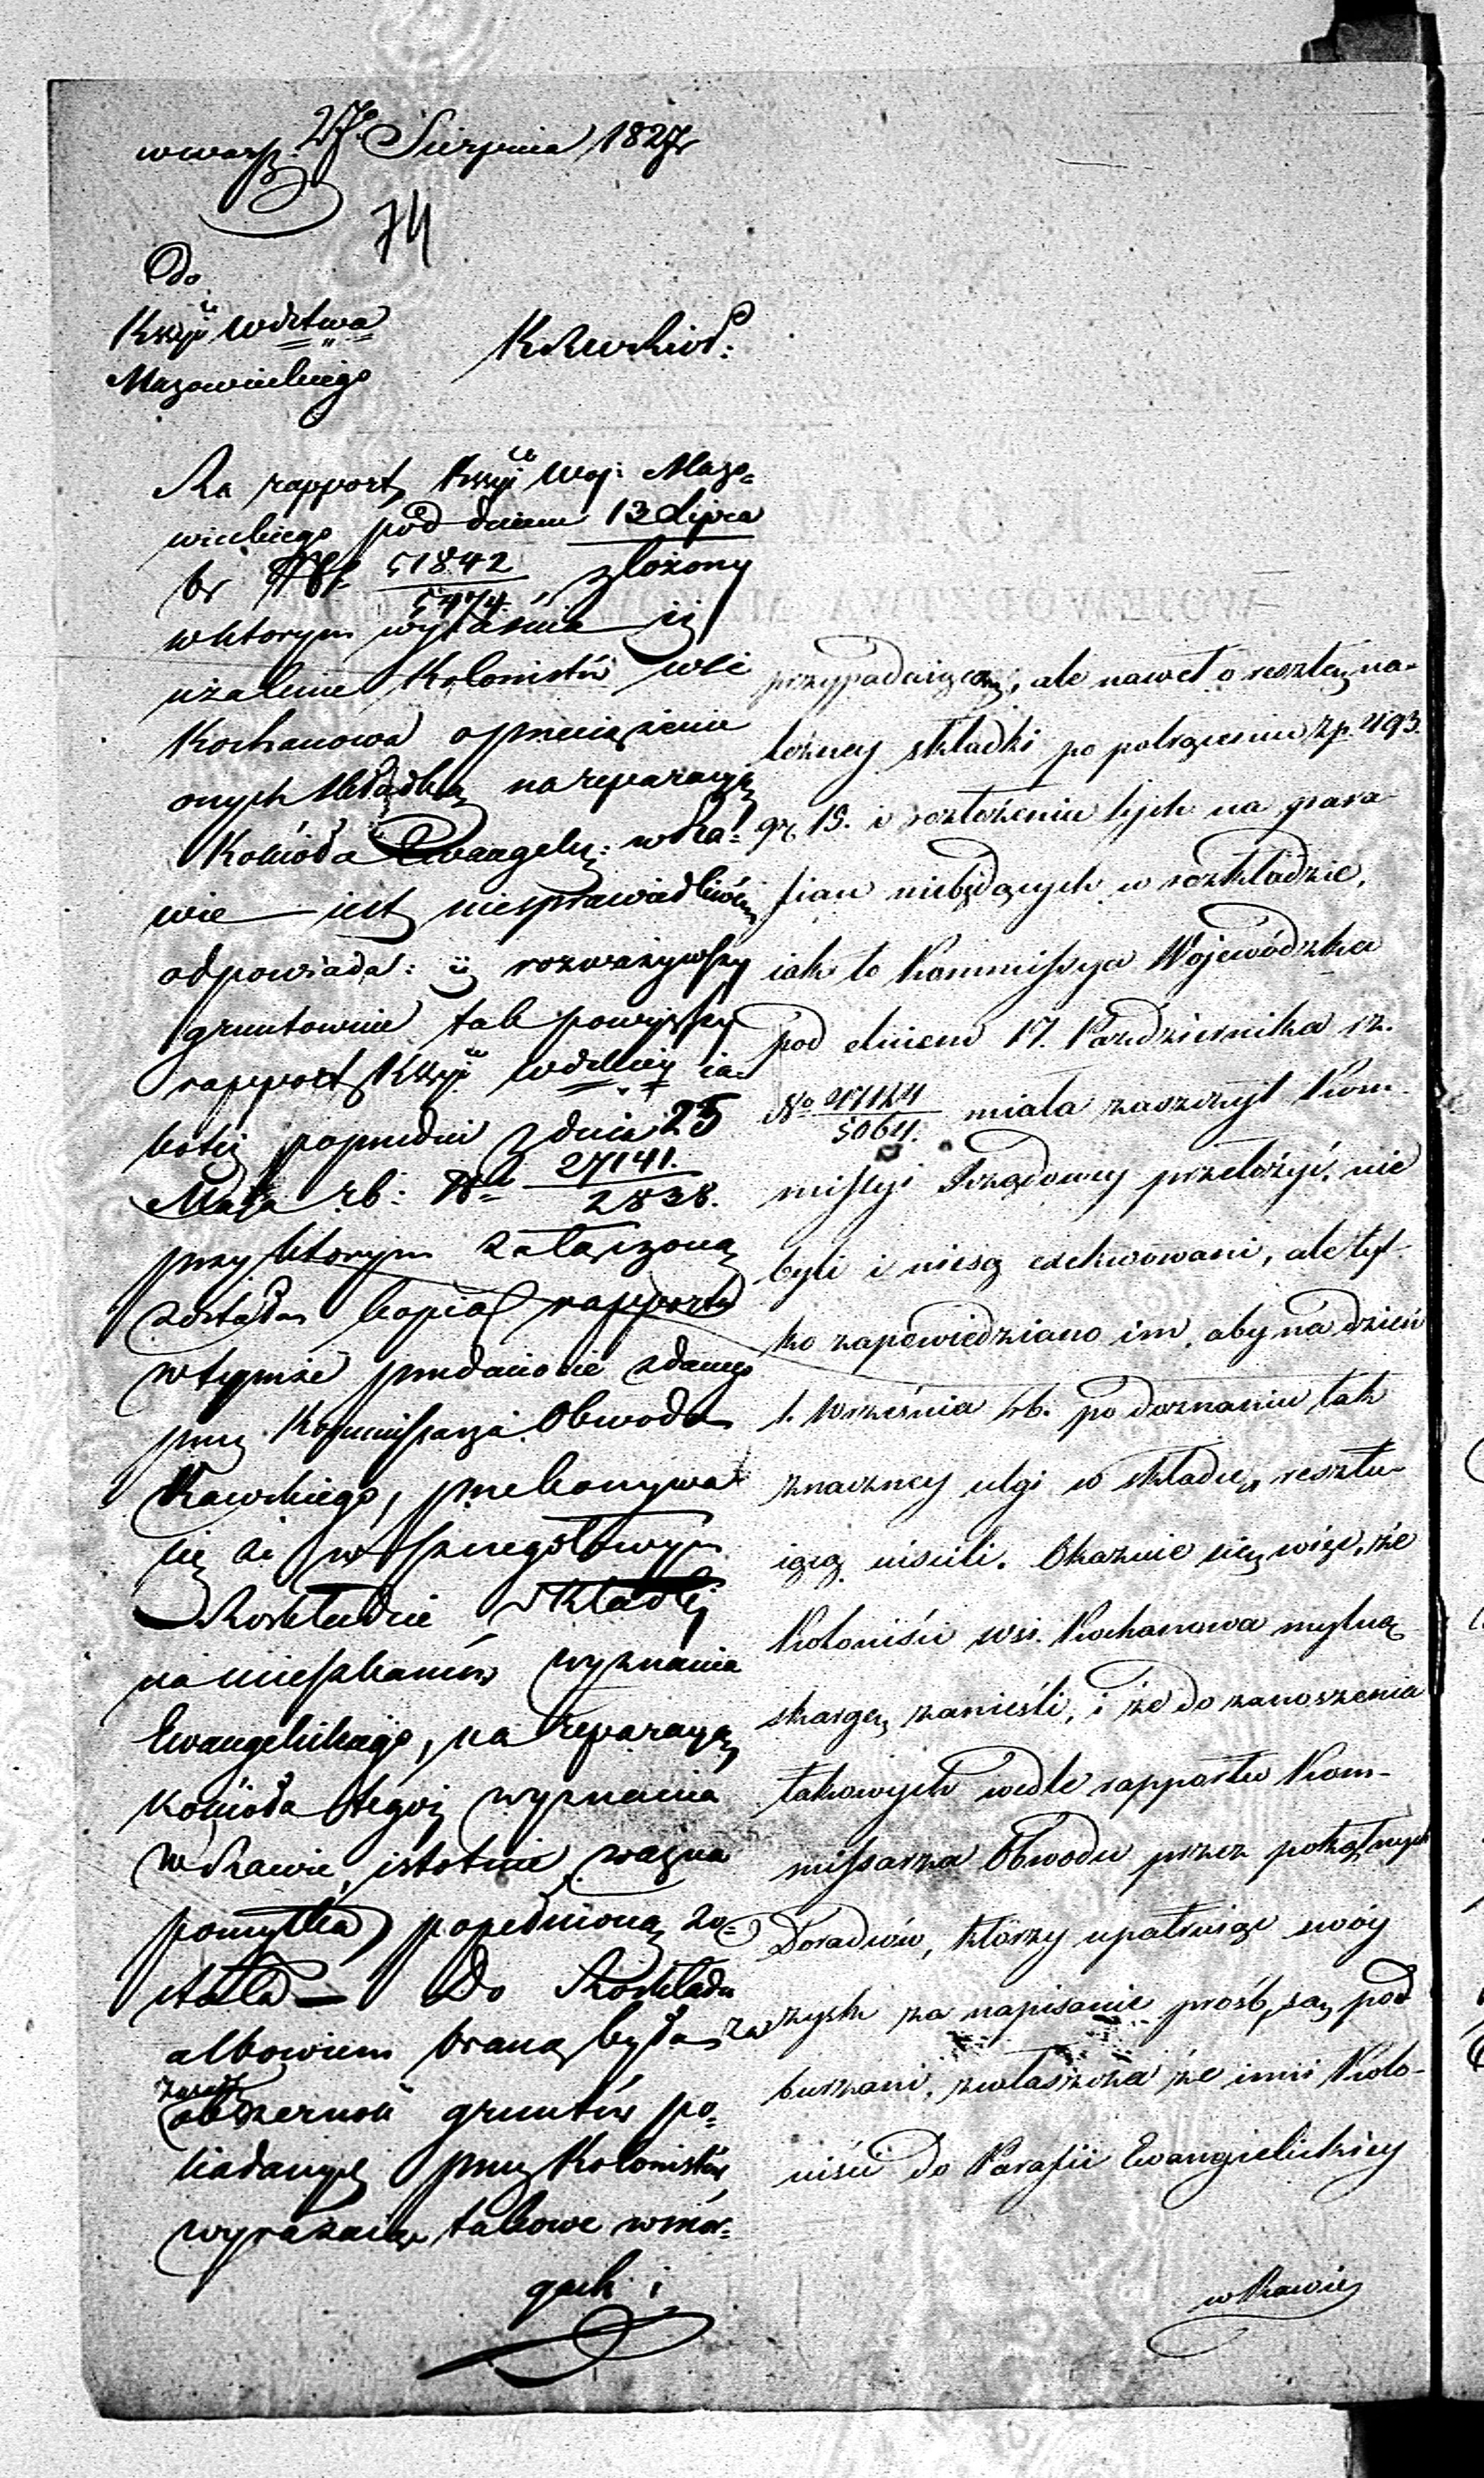 w Warsz. 27. Sierpnia 1827r
74
Do
Kssyi Wdztwa
Mazowieckiego
Na rapport Kssyi Woj: Mazo=
wieckiego pod dniem 13 Lipca
br N° 51842/5474 złożony
w ktorym wyraśnia iż
użalenie Kolonistów wsi
Kochanowa o przeciążenie
onych składką na reparacyą
Kościoła Ewangelic: w Ra=
wie iest niesprawiedliwém
odpowiada: iż rozważywszy
gruntownie tak powyższy
rapport Kssyi Wdzkiey ia=
koteż poprzedni z dnia 25
Maja rb: N° 27141./2838.
przy ktorym załączoną
została kopia rapportu
w tymże przedmiocie zdanego
przez Kommissarza Obwodu
Rawskiego, przekonywa
się że w szczegółowym
Rozkładzie składki
na mieszkańców wyznania
Ewangelickiego, na reparacyą
kościoła tegoż wyznania
w Rawie, istotnie ważna
pomyłka popełnioną zo=
stała — Do Rozkładu
albowiem braną była za
zasadę
obszerność gruntów po=
siadanych przez Kolonistów
wyrażaiąc takowe w mor=
gach i
przypadaiącey, ale nawet o resztę na-
leżney składki po potrąceniu zp. 493.
gr. 19. i rozłożeniu tych na para-
fian niebędących w rozkładzie,
iak to Kommissya Wojewódzka
pod dniem 17. Października rz.
N° 47124/5064. miała zaszczyt Kom-
missyi Rządowey przełożyć, nie
byli i niesą exekwowani, ale tyl-
ko zapowiedziano im, aby na dzień
1. Września rb. po doznaniu tak
znaczney ulgi w składce, resztu-
iącą uiścili. Okazuie się więc, że
Koloniści wsi Kochanowa mylną
skargę zanieśli, i że do zanoszenia
takowych wedle rapportu Kom-
missarza Obwodu przez pokątnych
Doradców, którzy upatruiąc swóy
zysk za napisanie prośb, są pod
burzani, zwłaszcza że inni Kolo-
niści do Parafii Ewangielickiey
w Rawie